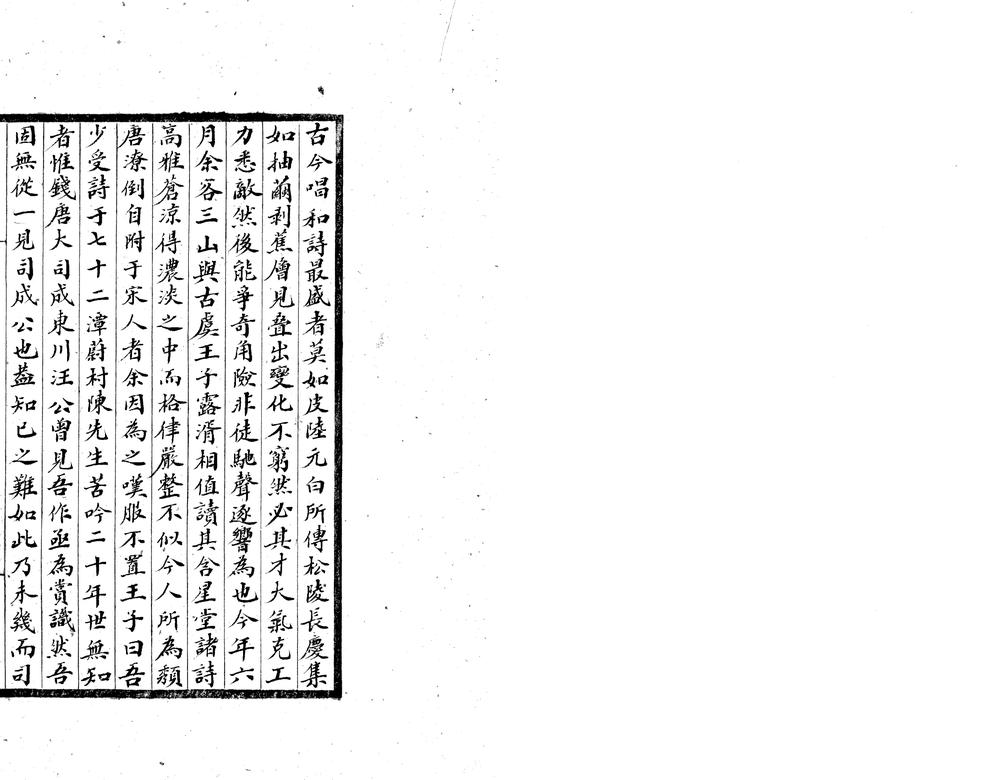 古今唱和詩最盛者莫如皮陸元白所傳松陵長慶集
如抽繭剥蕉層見疊出變化不窮然必其才大氣克工
力悉敵然後能爭奇角險非徒馳聲逐響為也今年六
月余客三山與古虞王子露湑相值讀其含星堂諸詩
高雅蒼涼得濃淡之中而格律嚴整不似今人所為頹
唐潦倒自附于宋人者余因為之嘆服不置王子曰吾
少受詩于七十二潭蔚村陳先生苦吟二十年世無知
者惟錢唐大司成東川汪公曾見吾作亟為賞識然吾
固無從一見司成公也葢知已之難如此乃未幾而司